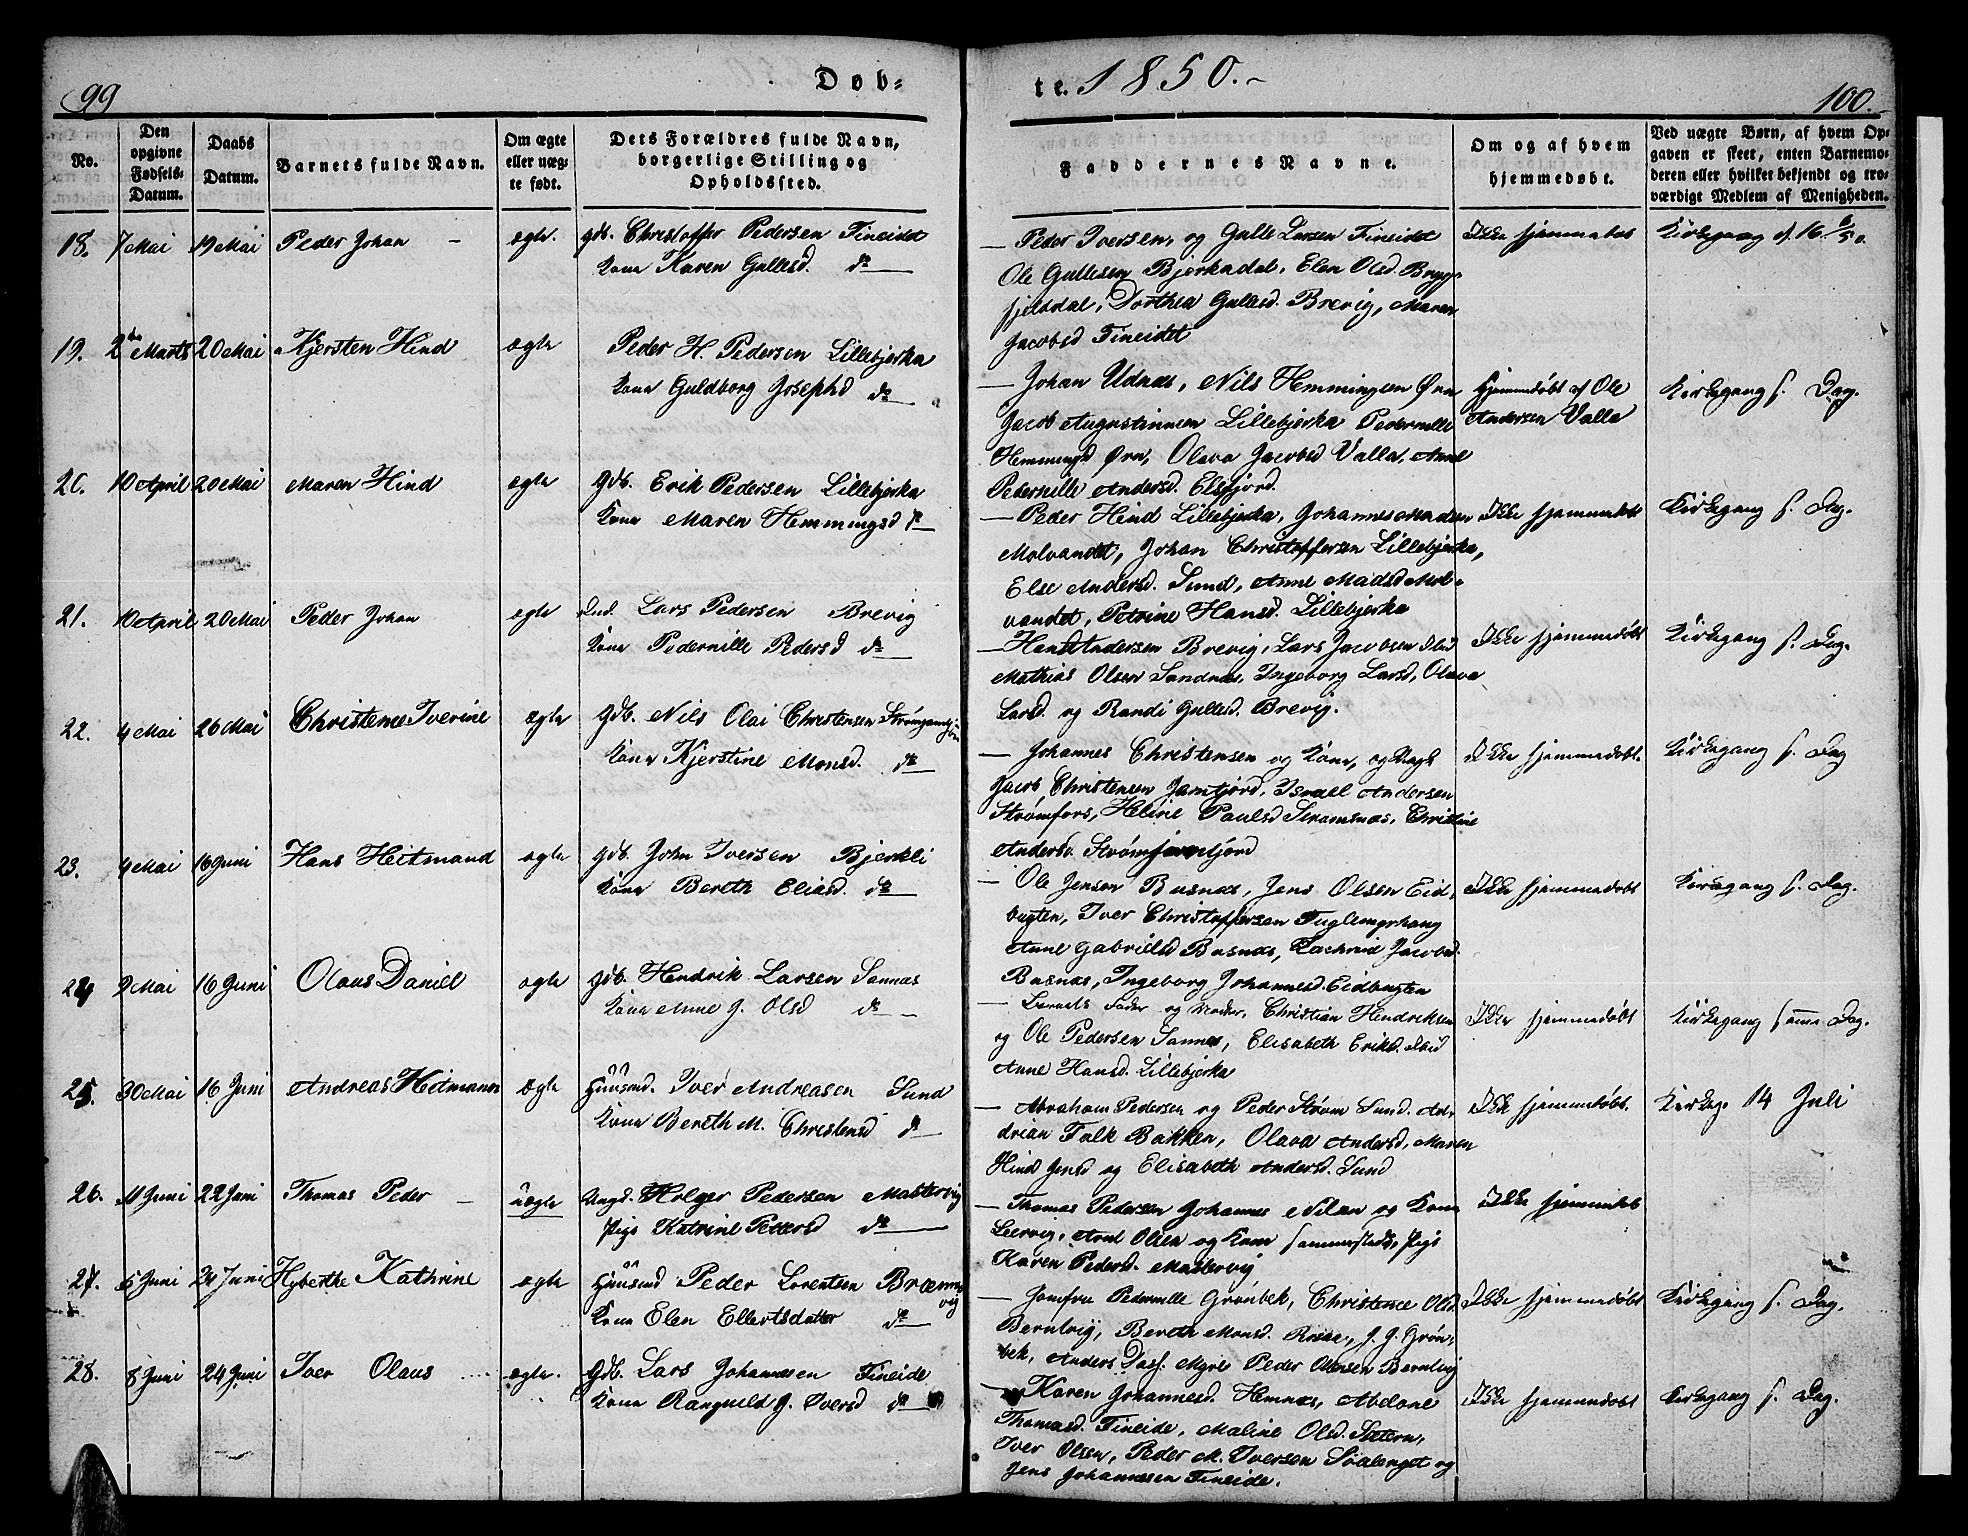 99
Døb-
te. 1850.
100.
No.
Den opgivne Fødsels-Datum.
Daabs Datum.
Barnets fulde Navn.
Om ægte eller uæg-te født.
Dets Forældres fulde Navn, borgerlige Stilling og Opholdssted.
Faddernes Navne.
Om og af hvem hjemmedøbt.
Ved uægte Børn, af hvem Op-gaven er skeet, enten Barnemo-deren eller hvilket bekjendt og tro-værdigt Medlem af Menigheden.
18. 7 Mai 19 Mai Peder Johan - ægte. gdb. Christoffer Pedersen Fineidet
Kone Karen Gullesd. do
— Peder Iversen, og Gulle Larsen Fineidet
Ole Gullesen Bjerkadal, Elen Olsd. Bryg-
fjeldal, Dorthea Gullesd. Brevig, Maren
Jacobsd Fineidet
Ikke hjemmedøbt
Kirkegang d. 16
19. 2 Marts 20 Mai Kjersten Hind ægte Peder H. Pedersen Lillebjerka
Kone Guldborg Josephsd do
— Johan Udnæs, Nils Hemmingsen Ørn
Jacob Augustinusen Lillebjerka Pedernille
Hemmingsd Ørn, Olava Jacobsd Valla, Anne
Pedernille Andersd. Elsfjord.
Hjemmedøbt af Ole
Andersen Valla
Kirkegang s. Dag.
20. 10 April 20 Mai Maren Hind ægte gdb. Erik Pedersen Lillebjerka
Kone Maren Hemmingsd do
— Peder Hind Lillebjerka, Johannes Madsen
Molvandet, Johan Christoffersen Lillebjerka,
Else Andersd. Sund, Anne Madsd Mol-
vandet, Petrine Hansd. Lillebjerka
Ikke hjemmedøbt
Kirkegang s. Dag.
21. 10 April 20 Mai Peder Johan ægte Ind. Lars Pedersen Brevig
Kone Pedernille Pedersd do
— Hans Andersen Brevig, Lars Jacobsen Ibid
Mathias Olsen Sandnæs, Ingeborg Larsd, Olava
Larsd. og Randi Gullesd. Brevig.
Ikke hjemmedøbt
Kirkegang s. Dag.
22. 4 Mai 26 Mai Christense Iverine ægte gdb. Nils Olai Christensen
Kone Kjerstine Monsd. do
— Johannes Christensen og Kone, og
Jacob Christensen Jamtjord, Israel Andersen
Strømfors, Heline Paulsd Stramsnæs, Christine
Andersd.
Ikke hjemmedøbt.
Kirkegang s. Dag
23. 4 Mai 16 Juni Hans Heitmand ægte gdb. John Iversen Bjerkli
Kone Bereth Eliasd. do
— Ole Jensen Busnæs, Jens Olsen Eid-
bugten, Iver Christoffersen Fuglemyrhaug
Anne Gabrielsd Busnæs, Zachrine Jacobsd.
Busnæs, Ingeborg Johannesd. Eidbugten
Ikke hjemmedøbt
Kirkegang s. Dag.
24 9 Mai 16 Juni Olaus Daniel ægte gdb. Hendrik Larsen Sannæs
Kone Anne J. Olsd do
— Barnets Fader og Moder, Christian Hendriksen
og Ole Pedersen Sannæs, Elisabeth Eriksd. Ibid
Anne Hansd. Lillebjerka
Ikke hjemmedøbt
Kirkegang samme Dag.
25. 30 Mai 16 Juni Andreas Heitmann ægte Huusmd. Iver Andreasen Sund
Kone Bereth M. Christensd do
— Abraham Pedersen og Peder Strøm Sund. An-
drian Falk Bakken, Olava Andersd, Maren
Hind Jensd og Elisabeth Andersd. Sund
Ikke hjemmedøbt.
Kirkeg. 14 Juli
26. 11 Juni 22 Juni Thomas Peder - uægte Ungd. Holger Pedersen Mastervig
Pige Katrine Petersd do
— Thomas Pedersen Johannes Nilsen og Kone
Leervig, Arnt Olsen og Kone sammesteds, Pige
Karen Pedersd. Mastervig
Ikke hjemmedøbt
27. 5 Juni 24 Juni Hyberthe Kathrine ægte Huusmd Peder Lorentsen Bræmn-
vig
Kone Elen Ellertsdatter do
— Jomfru Pedernille Grønbek, Christence Olsd
Berntvig, Bereth Monsd. Rosse, J. J. Grøn-
bek, Anders Dass. Myre Peder Olensen Berntvig
Ikke hjemmedøbt
Kirkegang s. Dag.
28. 8 Juni 24 Juni Iver Olaus ægte. gdb. Lars Johannesen Fineide
Kone Rangneld J. Iversd do
— Karen Johannesd. Hemnæs, Abelone
Thomasd. Fineide, Maline Olsd. Sætern,
Iver Olsen, Peder M. Iversen Svalenget og
Jens Johannesen Fineide.
Ikke hjemmedøbt
Kirkegang s. Dag.